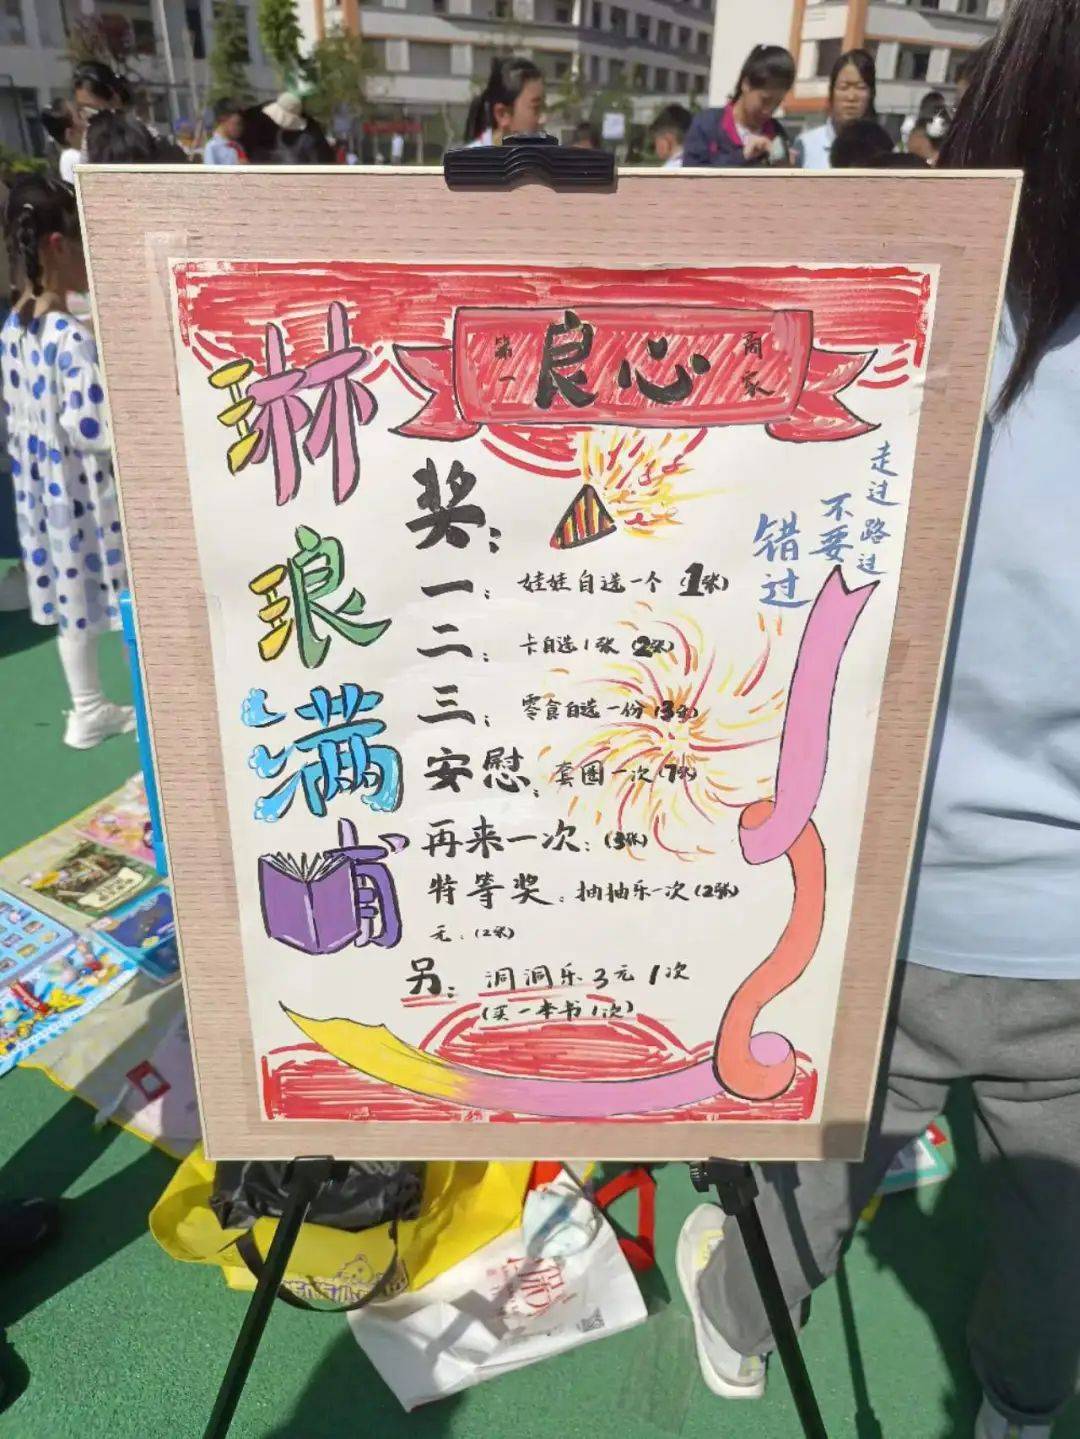 第一 良心 商家
琳琅满铺
走过路过
不要
错过
奖：
一：娃娃自选一个（1张）
二：卡自选1张（2张）
三：零食自选一份（3张）
安慰：套圈一次（7张）
再来一次：（3张）
特等奖：抽抽乐一次（2张）
无：（2张）
另：洞洞乐3元1次
（买一本书1次）